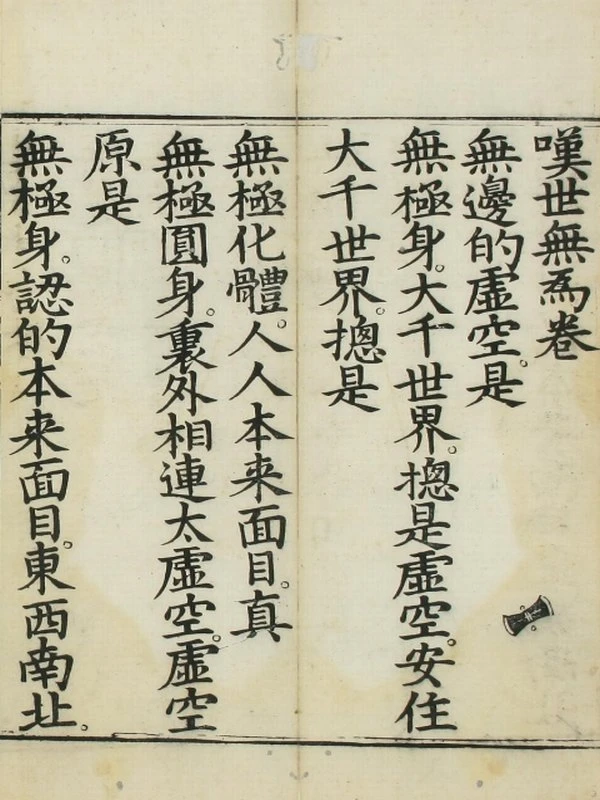 嘆世無為卷
無邊的虛空。是
無極身。大千世界。揔是虛空。安住
大千世界。揔是
無極化體。人人本来面目。真
無極圓身。裏外相連太虛空。虛空
原是
無極身。認的本来面目。東西南北。